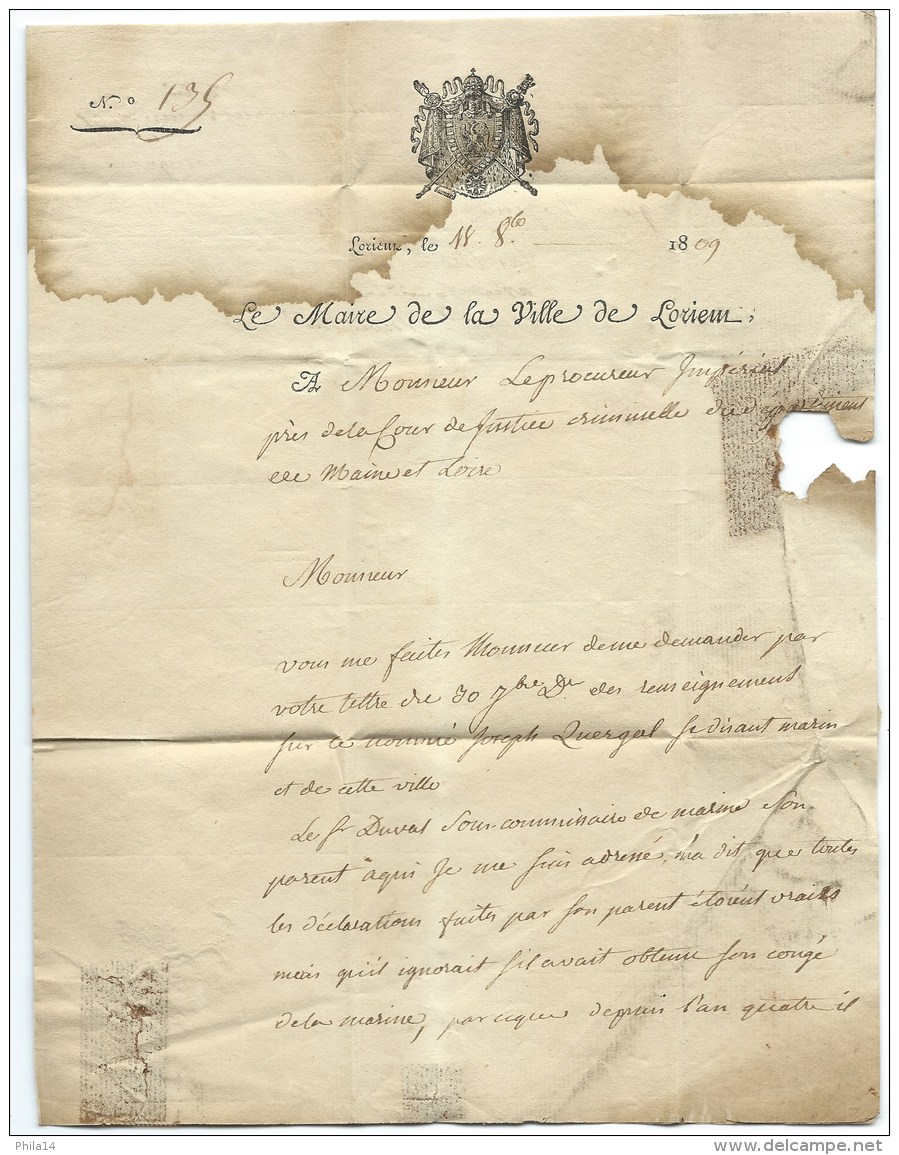 N.o 135
Lorient, le 8bre 1809
Le Maire de la Ville de Lorient,
A Monsieur Le procureur Impérial
près de la Cour de Justice criminelle du département
de Maine et Loire
Monsieur
vous me faites Monsieur de me demander par
votre lettre du 30 7bre Dr des renseignements
sur le nommé Joseph Quergal se disant marin
et de cette ville
Le Sr Duval Sous-commissaire de marine son
parent aqui Je me suis adressé, m'a dit que toutes
les déclarations faites par son parent étoient vraies
mais qu'il ignorait s'il avait obtenu son congé
de la marine, parceque depuis l'an quatre il
Phila14
delcampe.net